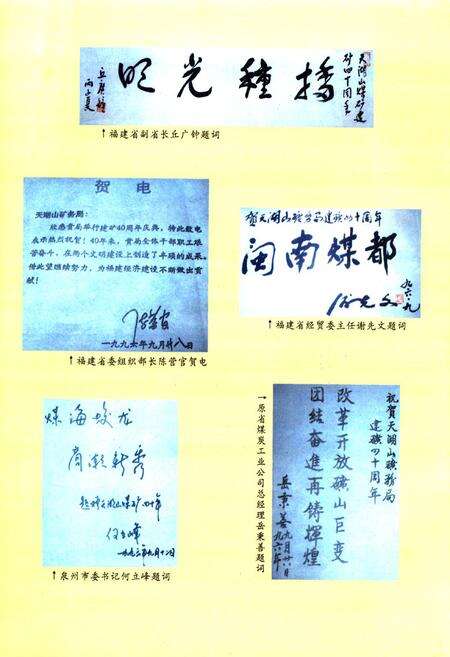 天湖山煤矿建
矿四十周年
播種光明
丙子夏
↑福建省副省长丘广钟题词
贺电
天湖山矿务局:
欣悉贵局举行建矿40周年庆典,特此致电
表示热烈祝贺!40年来,贵局全体干部职工艰
苦奋斗,在两个文明建设上创造了丰硕的成果。
借此望继续努力,为福建经济建设不断做出贡
献!
陈营官
一九九六年九月廿八日
↑福建省委组织部长陈营官贺电
贺天湖山矿务局建矿四十周年
闽南煤都
谢先文
九六.九
↑福建省经贸委主任谢先文题词
煤海蛟龙
何立峰
一九九六年九月十二日
↑泉州市委书记何立峰题词
祝賀天湖山礦務局
建礦四十周年
改革开放礦山巨变
团结奋進再铸輝煌
岳秉善
九六年
九月廿八日
↑原省煤炭工业公司总经理岳秉善题词